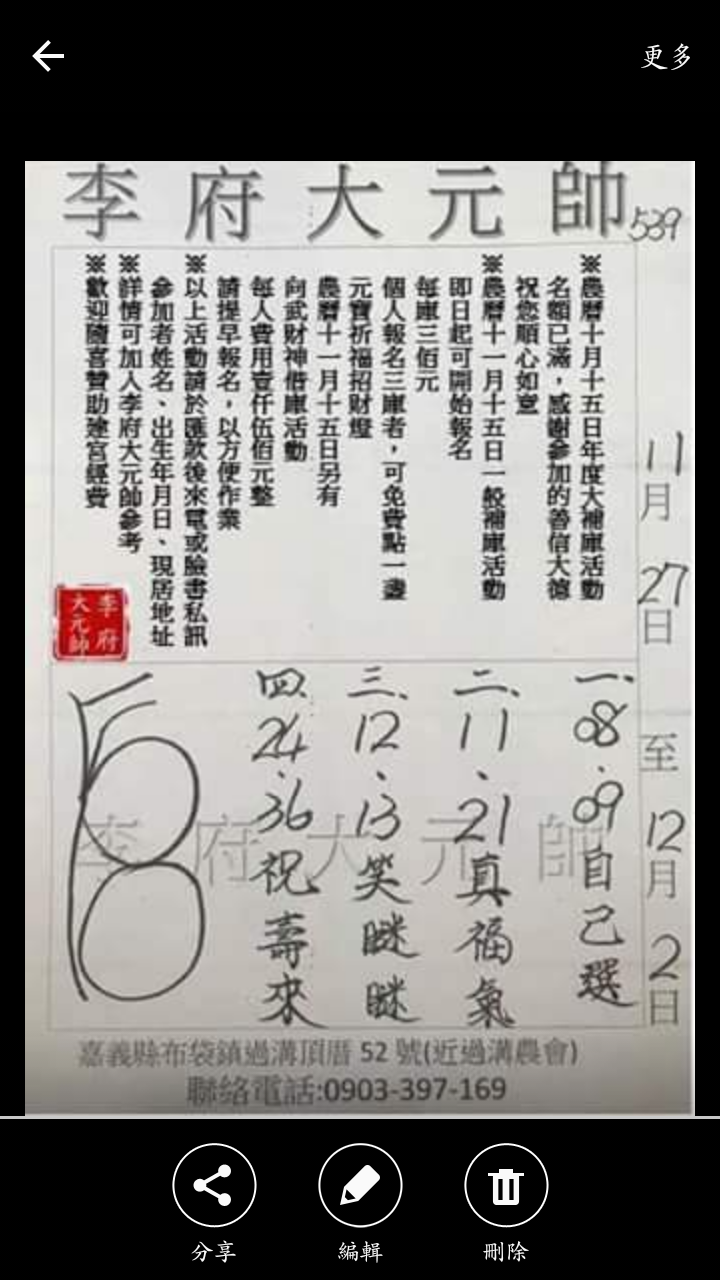 更多
李府大元帥
539
※農曆十月十五日年度大補庫活動
名額已滿，感謝參加的善信大德
祝您順心如意
※農曆十一月十五日一般補庫活動
即日起可開始報名
每庫三佰元
個人報名三庫者，可免費點一盞
元寶祈福招財燈
農曆十一月十五日另有
向武財神借庫活動
每人費用壹仟伍佰元整
請提早報名，以方便作業
※以上活動請於匯款後來電或臉書私訊
參加者姓名、出生年月日、現居地址
※詳情可加入李府大元帥參考
※歡迎隨喜贊助建宮經費
李府
大元帥
11月27日至12月2日
一、08.09自己選
二、11、21真福氣
三、12、13笑瞇瞇
四、24、36祝壽來
李府大元帥
嘉義縣布袋鎮過溝頂厝 52 號(近過溝農會)
聯络電話:0903-397-169
分享
編輯
刪除